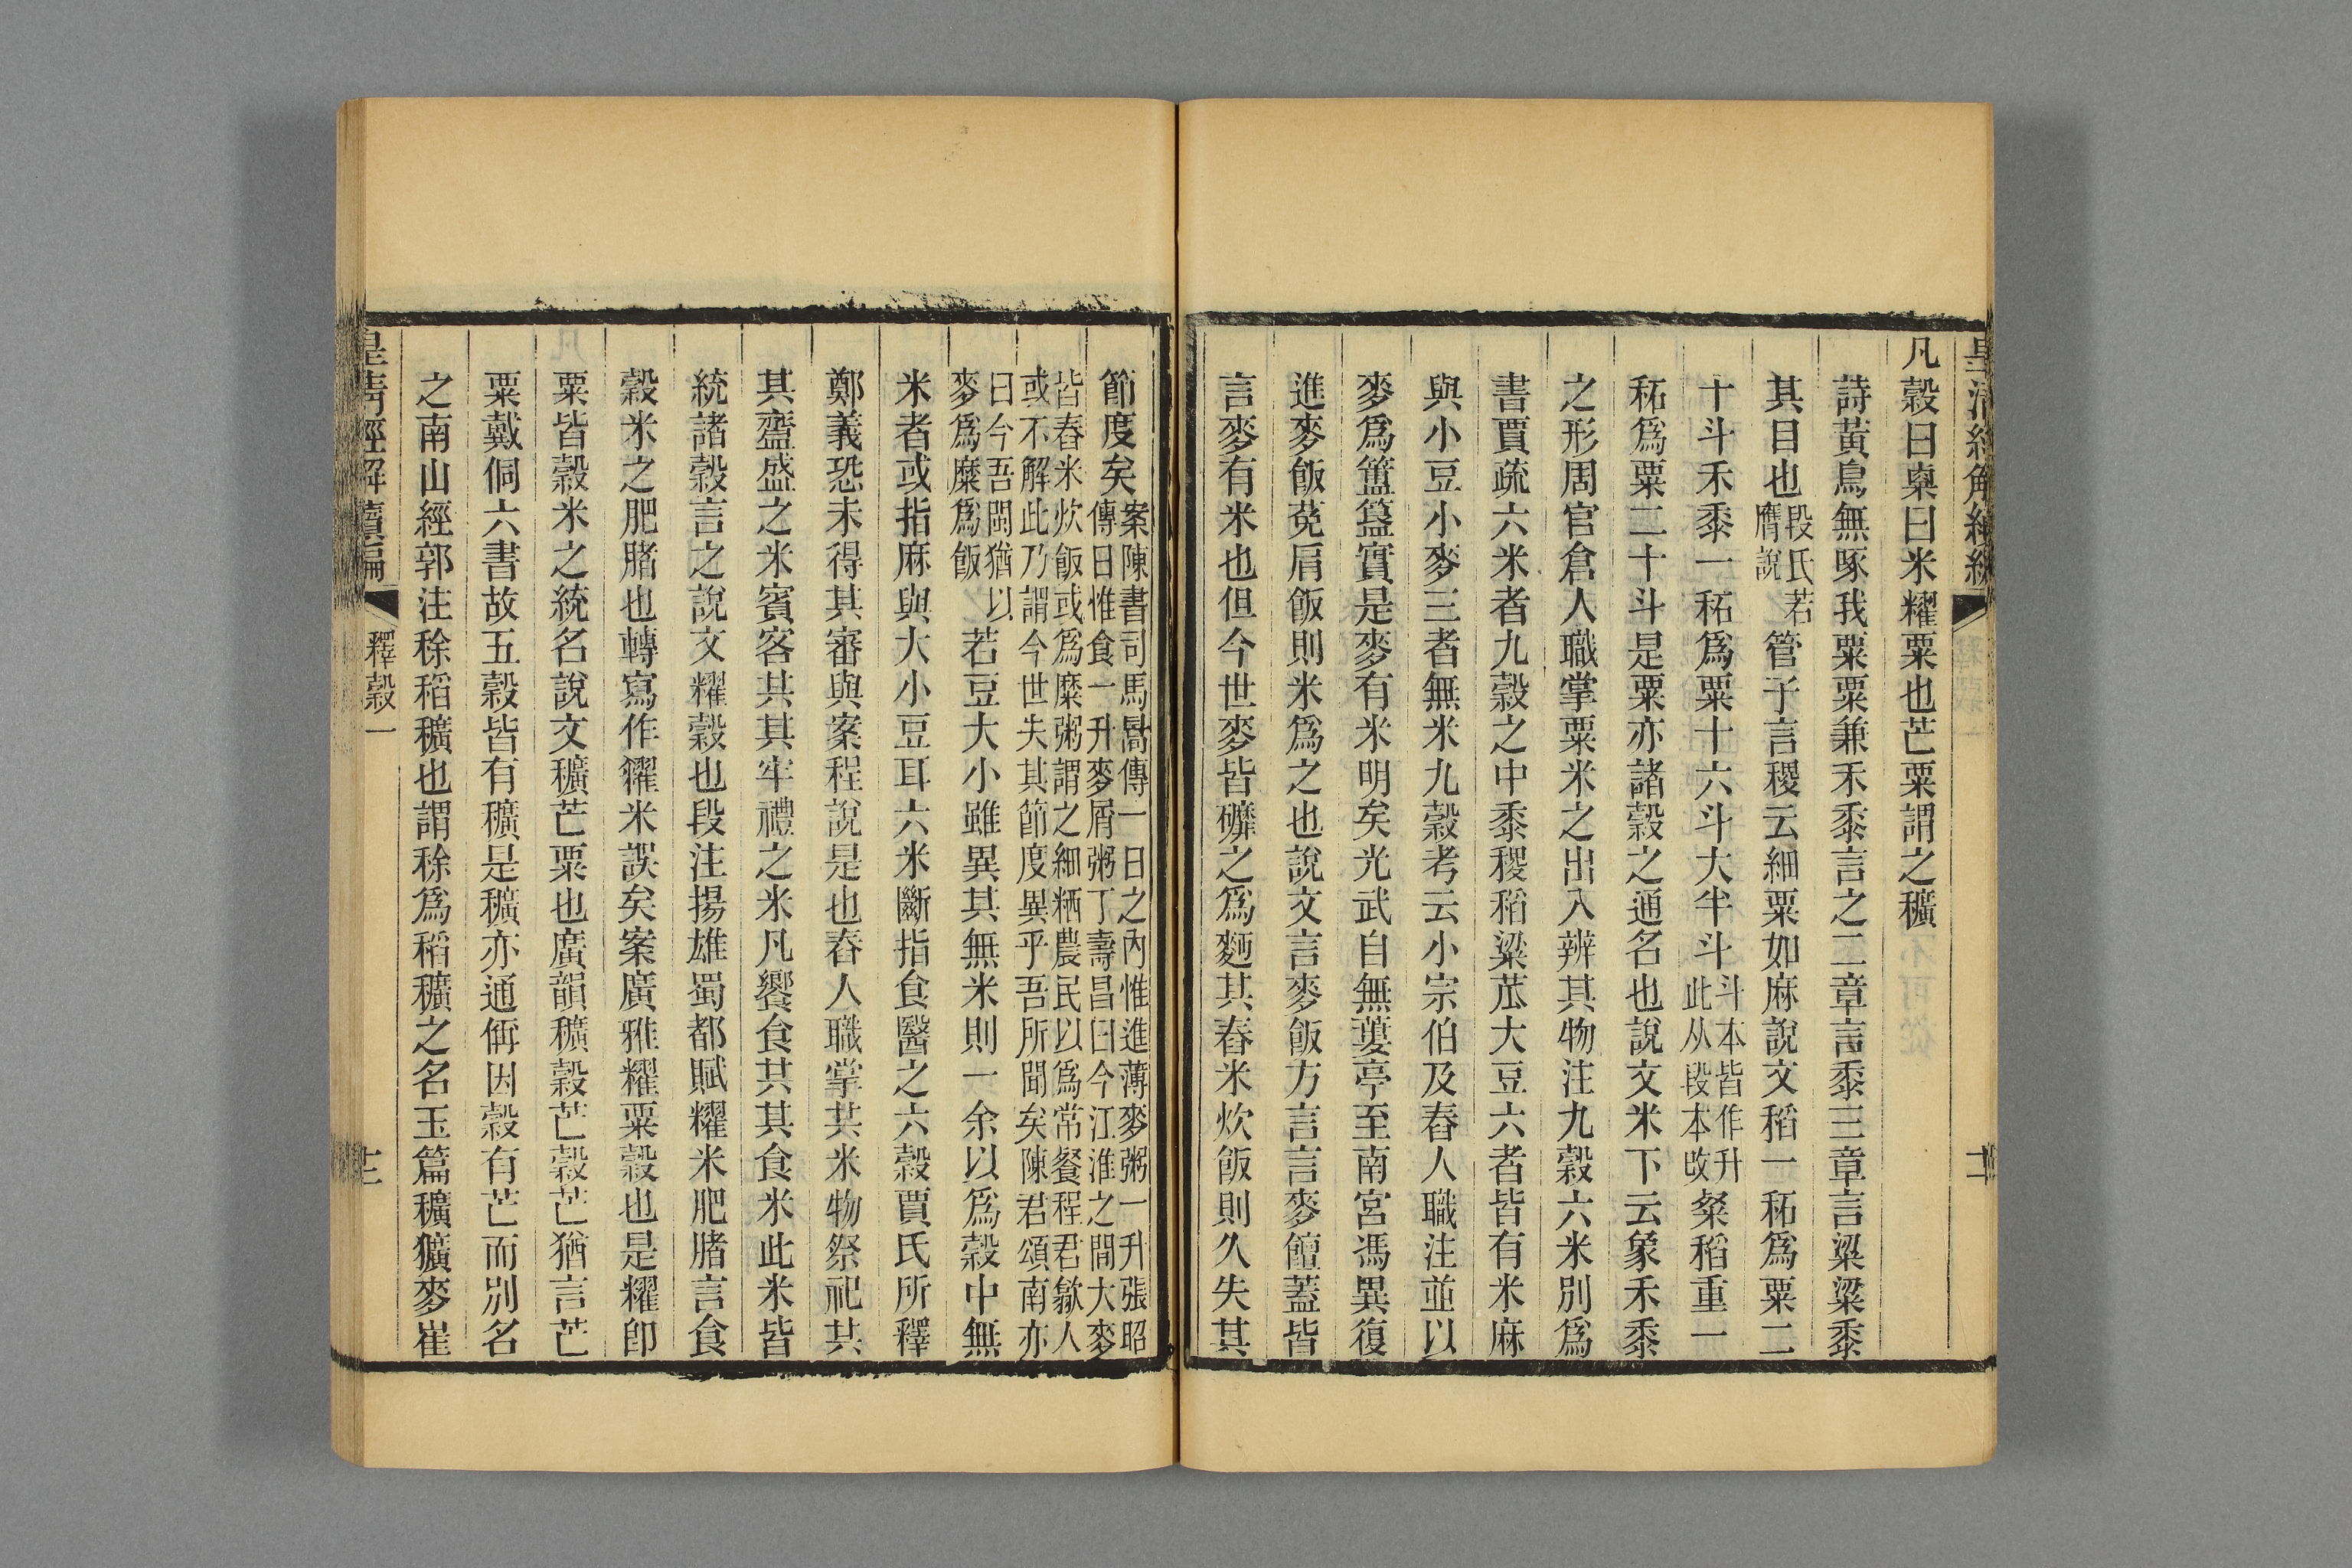 凡穀曰稟曰米糶粟也芒粟謂之穬
詩黃鳥無啄我粟粟兼禾黍言之二章言黍三章言粱粱黍
其目也段氏若膺說管子言稷云細粟如麻說文稻一秳爲粟二
十斗禾黍一秳爲粟十六斗大半斗斗本皆作升此从段本改粲稻重一
秳爲粟二十斗是粟亦諸穀之通名也說文米下云象禾黍
之形周官倉人職掌粟米之出入辨其物注九穀六米別爲
書賈疏六米者九穀之中黍稷稻粱苽大豆六者皆有米麻
與小豆小麥三者無米九穀考云小宗伯及舂人職注並以
麥爲簠簋實是麥有米明矣光武自無蔞亭至南宮馮異復
進麥飯菟肩飯則米爲之也說文言麥飯方言言麥饘蓋皆
言麥有米也但今世麥皆礳之爲麪其舂米炊飯則久失其
節度矣案陳書司馬暠傳一日之內惟進薄麥粥一升張昭
傳日惟食一升麥屑粥丁壽昌曰今江淮之間大麥
皆舂米炊飯或爲糜粥謂之細粞農民以爲常餐程君歙人
或不解此乃謂今世失其節度異乎吾所聞矣陳君頌南亦
曰今吾閩猶以麥爲糜爲飯若豆大小雖異其無米則一余以爲穀中無
米者或指麻與大小豆耳六米斷指食醫之六穀賈氏所釋
鄭義恐未得其審與案程說是也舂人職掌共米物祭祀共
其齍盛之米賓客共其牢禮之米凡饗食共其食米此米皆
統諸穀言之說文糶穀也段注揚雄蜀都賦糶米肥腯言食
穀米之肥腯也轉寫作糶米誤矣案廣雅糶粟穀也是糶卽
粟皆穀米之統名說文穬芒粟也廣韻穬穀芒穀芒猶言芒
粟戴侗六書故五穀皆有穬是穬亦通偁因穀有芒而別名
之南山經郭注稌稻穬也謂稌爲稻穬之名玉篇穬穬麥崔
皇淸經解續編
釋穀一
十二